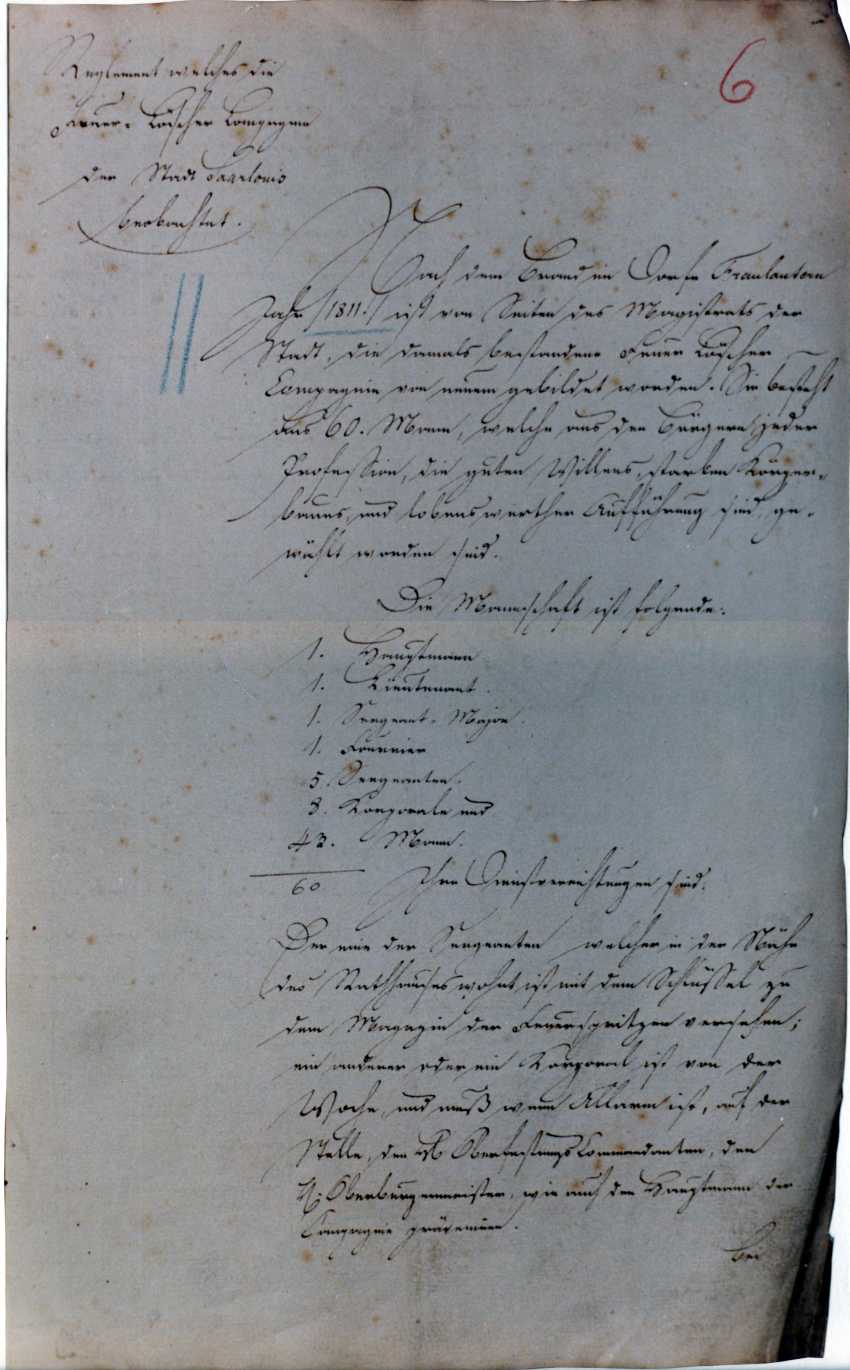 6
Reglement welches die
Feuer-Löscher Compagnie
der Stadt Saarlouis
beobachtet.
Nach dem Brand im Dorfe Fraulautern
Jahr /1811./ ist von Seiten des Magistrats der
Stadt, die damals bestandene Feuer Löscher
Compagnie von neuem gebildet worden. Sie besteht
aus 60. Mann, welche aus den Bürgern jeder
Profession, die guten Willens, starken Körper-
baues, und lobenswerther Aufführung sind, ge-
wählt worden sind.
Die Mannschaft ist folgende:
1. Hauptmann
1. Lieutenant.
1. Sergeant-Major.
1. Fourrier
5. Sergeanten.
8. Korporale und
43. Mann.
60 Ihre Dienstverrichtungen sind:
Der eine der Sergeanten welcher in der Nähe
des Rathhauses wohnt ist mit dem Schlüssel zu
dem Magazin der Feuerspritzen versehen;
ein anderer oder ein Korporal ist von der
Woche, und muß wenn Allarm ist, auf der
Stelle, den Oberfestungs Commandanten, den
H. Oberbürgermeister, wie auch den Hauptmann der
Compagnie
bei